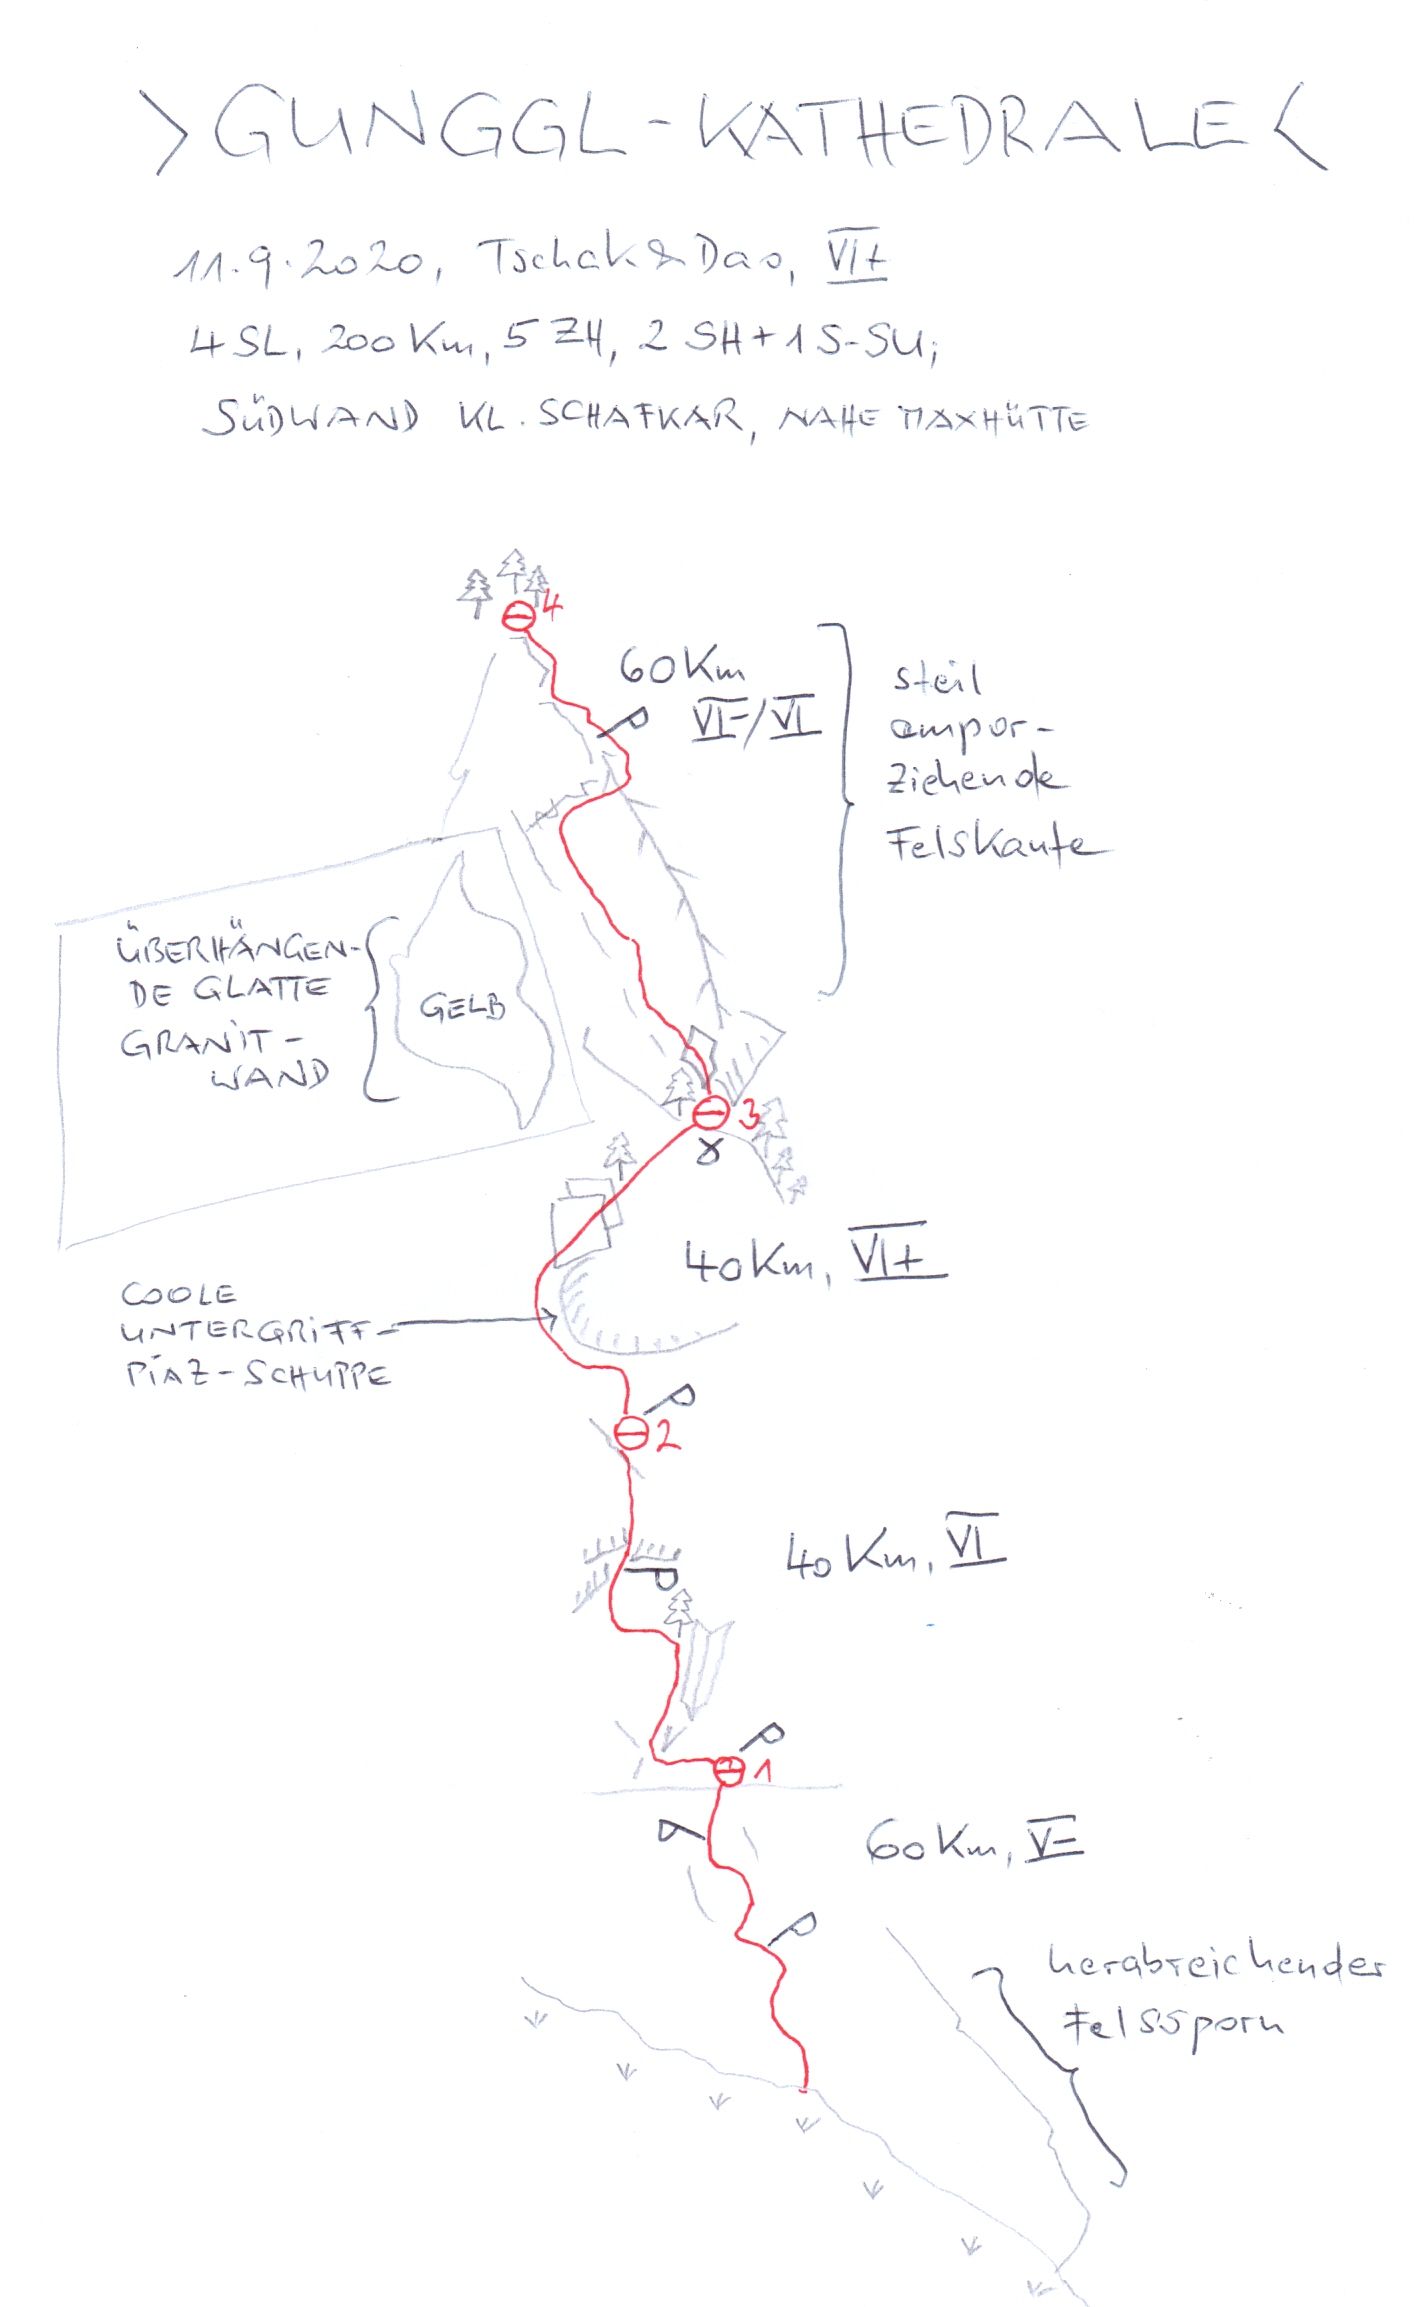 >GUNGGL-KATHEDRALE<
11.9.2020, Tschak & Dao, VI+
4 SL, 200 Km, 5 ZH, 2 SH + 1 S-SU;
SÜDWAND KL. SCHAFKAR, NAHE MAXHÜTTE
4
60 Km
VI-/VI
steil
empor-
ziehende
Felskante
ÜBERHÄNGEN-
DE GLATTE
GRANIT-
WAND
GELB
3
40 Km, VI+
COOLE
UNTERGRIFF-
PIAZ-SCHUPPE
2
40 Km, VI
1
60 Km, V-
herabreichender
Felssporn